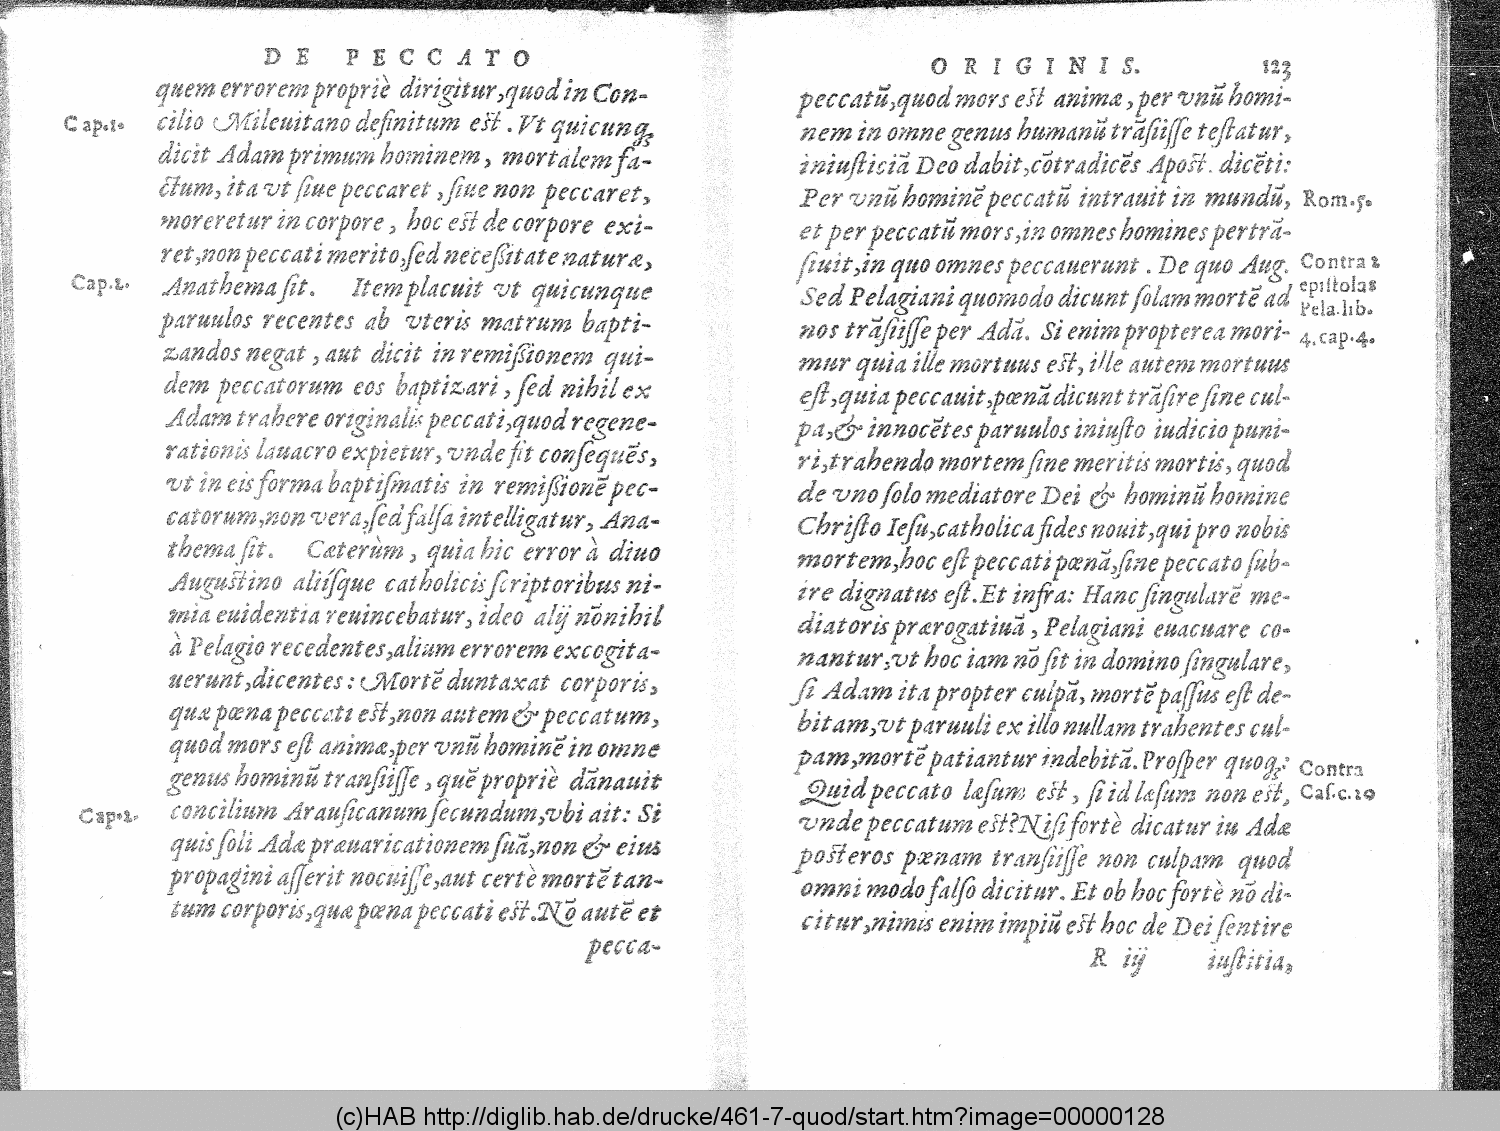 DE PECCATO
quem errorem propriè dirigitur, quod in Con-
Cap.1.
cilio Mileuitano definitum est. Vt quicunqꝫ
dicit Adam primum hominem, mortalem fa-
ctum, ita vt ſiue peccaret, ſiue non peccaret,
moreretur in corpore, hoc est de corpore exi-
ret, non peccati merito, ſed neceſſitate naturæ,
Cap.2.
Anathema ſit. Item placuit vt quicunque
paruulos recentes ab vteris matrum bapti-
zandos negat, aut dicit in remiſſionem qui-
dem peccatorum eos baptizari, ſed nihil ex
Adam trahere originalis peccati, quod regene-
rationis lauacro expietur, vnde fit conſequẽs,
vt in eis forma baptiſmatis in remiſſionẽ pec-
catorum, non vera, ſed falſa intelligatur, Ana-
thema ſit. Cæterùm, quia hic error à diuo
Augustino aliíſque catholicis ſcriptoribus ni-
mia euidentia reuincebatur, ideo alij nõnihil
à Pelagio recedentes, alium errorem excogita-
uerunt, dicentes: Mortẽ duntaxat corporis,
quæ pœna peccati est, non autem & peccatum,
quod mors eſt animæ, per vnũ hominẽ in omne
genus hominũ tranſiiſſe, quẽ propriè dãnauit
Cap.2.
concilium Arauſicanum ſecundum, vbi ait: Si
quis ſoli Adæ præuaricationem ſuã, non & eius
propagini aſſerit nocuiſſe, aut certè mortẽ tan-
tum corporis, quæ pœna peccati est. Nõ autẽ et
pecca-
ORIGINIS. 123
peccatũ, quod mors est animæ, per vnũ homi-
nem in omne genus humanũ trãſiiſſe teſtatur,
iniuſticiã Deo dabit, cõtradicẽs Apost. dicẽti:
Per vnũ hominẽ peccatũ intrauit in mundũ,
Rom.5.
et per peccatũ mors, in omnes homines pertrã-
ſiuit, in quo omnes peccauerunt. De quo Aug.
Contra 2
epiſtolas
Pela.lib.
4.cap.4.
Sed Pelagiani quomodo dicunt ſolam mortẽ ad
nos trãſiiſſe per Adã. Si enim propterea mori-
mur quia ille mortuus est, ille autem mortuus
eſt, quia peccauit, pœnã dicunt trãſire ſine cul-
pa, & innocẽtes paruulos iniuſto iudicio puni-
ri, trahendo mortem ſine meritis mortis, quod
de vno ſolo mediatore Dei & hominũ homine
Chriſto Ieſu, catholica fides nouit, qui pro nobis
mortem, hoc eſt peccati pœnã, ſine peccato ſub-
ire dignatus eſt. Et infra: Hanc ſingularẽ me-
diatoris prærogatiuã, Pelagiani euacuare co-
nantur, vt hoc iam nõ ſit in domino ſingulare,
ſi Adam ita propter culpã, mortẽ paſſus eſt de-
bitam, vt paruuli ex illo nullam trahentes cul-
pam, mortẽ patiantur indebitã. Proſper quoqꝫ:
Contra
Caſ.c.20
Quid peccato læſum est, ſi id læſum non est,
vnde peccatum est? Niſi fortè dicatur iu Adæ
posteros pœnam tranſiiſſe non culpam quod
omni modo falſo dicitur. Et ob hoc fortè nõ di-
citur, nimis enim impiũ est hoc de Dei ſentire
R iij iuſtitia,
(c)HAB http://diglib.hab.de/drucke/461-7-quod/start.htm?image=00000128